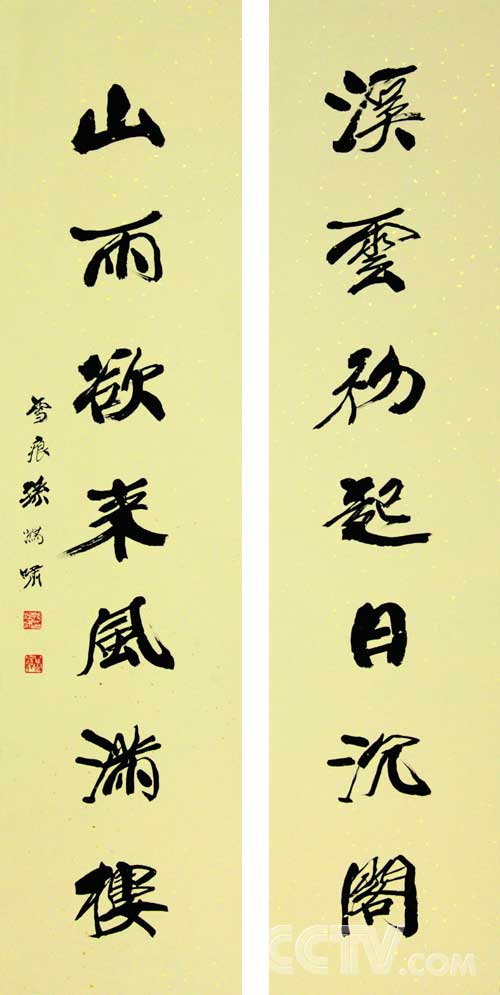 溪雲初起日沉閣
山雨欲来風滿樓
雪痕孫嘯
CCTV.com